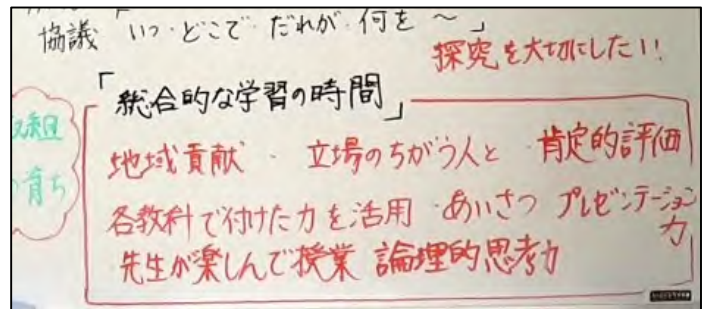 協議「いつ・どこで・だれが・何を〜」
探究を大切にしたい!
「総合的な学習の時間」
地域貢献・立場のちがう人と・肯定的評価
各教科で付けた力を活用・あいさつ プレゼンテーション力
先生が楽しんで授業 論理的思考力
育ち